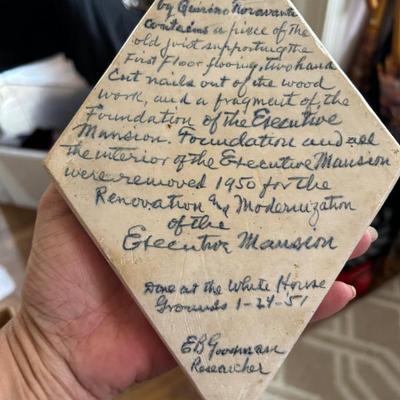 by Quirino
contains a piece of the
old joist supporting the
First Floor flooring, two hand
cut nails out of the wood
work, and a fragment of, the
Foundation of the Executive
Mansion. Foundation and all
the interior of the Executive Mansion
were removed 1950 for the
Renovation and Modernization
of the
Executive Mansion
Done at the White House
Grounds 1-24-51
EB
Researcher